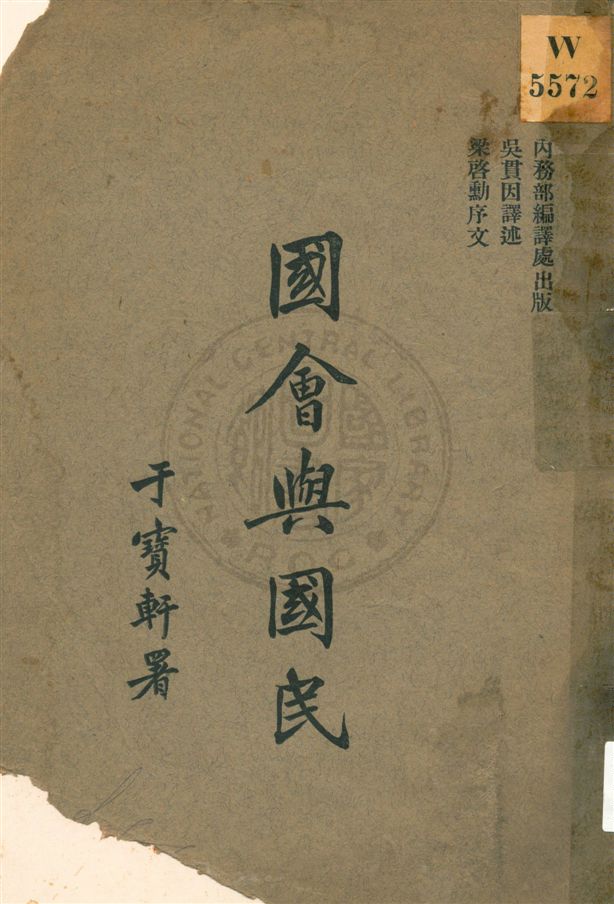 W
5572
內務部編譯處出版
吳貫因譯述
梁啓勳序文
國會與國民
于寶軒署
NATIONAL CENTRAL LIBRARY
R.O.C